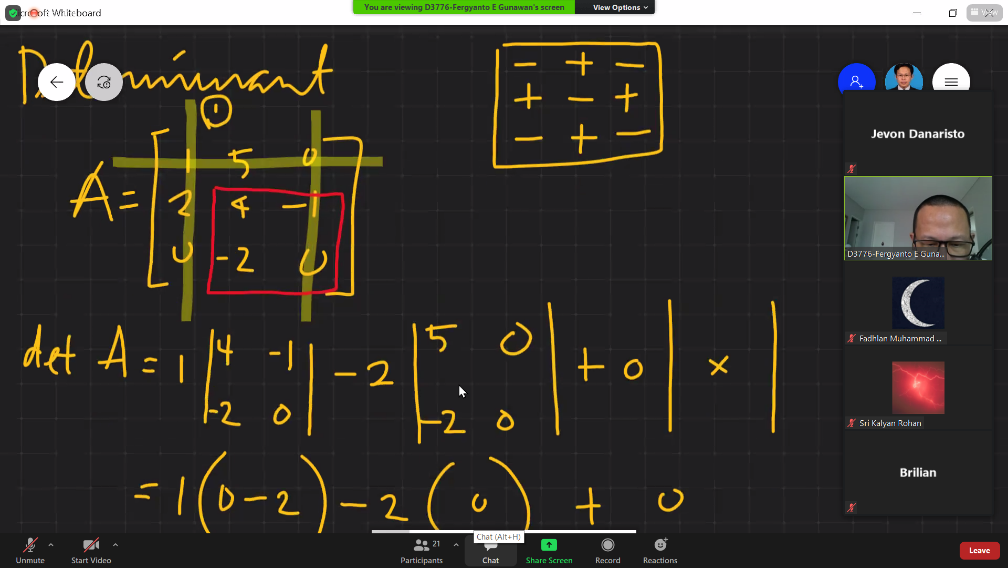 Microsoft Whiteboard
You are viewing D3776-Fergyanto E Gunawan's screen
View Options
View
Determinant
①
- + -
+ - +
- + -
A = [1 5 0
2 4 -1
0 -2 0]
det A = 1 |4 -1
-2 0| - 2 |5 0
-2 0| + 0 | × |
= 1 (0 - 2) - 2 (0) + 0
Jevon Danaristo
D3776-Fergyanto E Guna...
Fadhlan Muhammad ...
Sri Kalyan Rohan
Brilian
Chat (Alt+H)
Unmute
Start Video
21
Participants
Chat
Share Screen
Record
Reactions
Leave